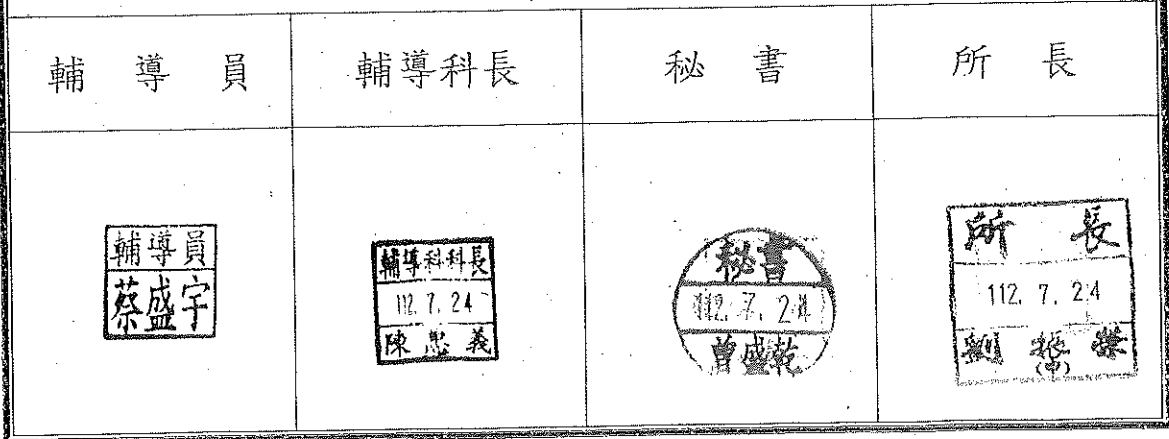 輔導員 輔導科長 秘書 所長
輔導員
蔡盛宇
輔導科科長
112.7.24
陳忠義
秘書
112.7.24
曾盛乾
所長
112.7.24
劉振榮
(甲)